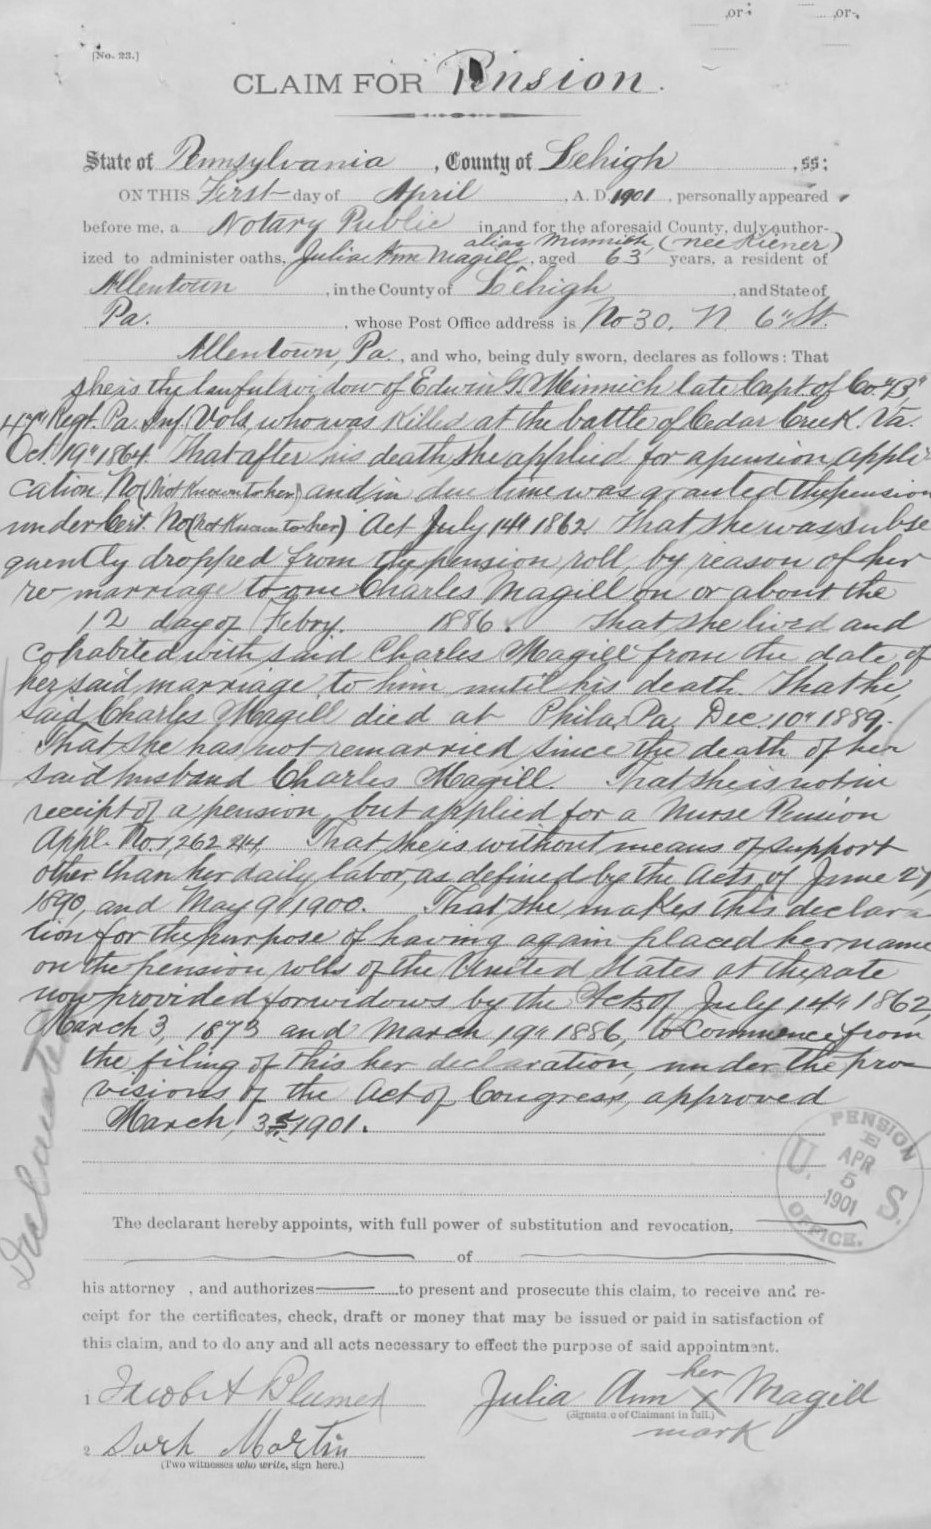 ,or-
,or-,
[No. 23.]
CLAIM FOR Pension.
State of Pennsylvania, County of Lehigh, ss:
ON THIS First day of April, A. D. 1901, personally appeared
before me, a Notary Public in and for the aforesaid County, duly author-
alias Minnich, (nee Kiener)
ized to administer oaths, Julia Ann Magill, aged 63 years, a resident of
Allentown, in the County of Lehigh, and State of
Pa., whose Post Office address is No 30. N 6" St.
Allentown, Pa., and who, being duly sworn, declares as follows: That
she is the lawful widow of Edwin G. Minnich late Capt. of Co. "B,"
47" Regt. Pa. Inf. Vols, who was killed at the battle of Cedar Creek. Va.
Oct. 19" 1864. That after his death she applied for a pension, appli-
cation No (Not Known to her) and in due time was granted the pension
under Cert. No (Not Known to her) Act July 14" 1862. That she was subse
quently dropped from the pension roll, by reason of her
re-marriage to one Charles Magill on or about the
12 day of Febry. 1886. That she lived and
cohabited with said Charles Magill from the date of
her said marriage to him until his death. That he,
said Charles Magill died at Phila. Pa. Dec. 10" 1889.
That she has not remarried since the death of her
said husband Charles Magill. That she is not in
receipt of a pension, but applied for a Nurse Pension
Appl. No. 1,262 244. That she is without means of support
other than her daily labor, as defined by the Acts of June 27,
1890, and May 9" 1900. That she makes this declara
tion for the purpose of having again placed her name
on the pension rolls of the United States at the rate
now provided for widows by the Acts of July 14" 1862,
March 3, 1873 and March 19" 1886, to Commence from
the filing of this her declaration, under the pro-
visions of the Act of Congress, approved
March, 3rd 1901.
PENSION OFFICE. U. S. APR 5 1901
The declarant hereby appoints, with full power of substitution and revocation,
of
his attorney , and authorizes to present and prosecute this claim, to receive and re-
ceipt for the certificates, check, draft or money that may be issued or paid in satisfaction of
this claim, and to do any and all acts necessary to effect the purpose of said appointment.
her
1 Jacob A Blumer Julia Ann X Magill
(Signature of Claimant in full.)
mark
2 Martin
(Two witnesses who write, sign here.)